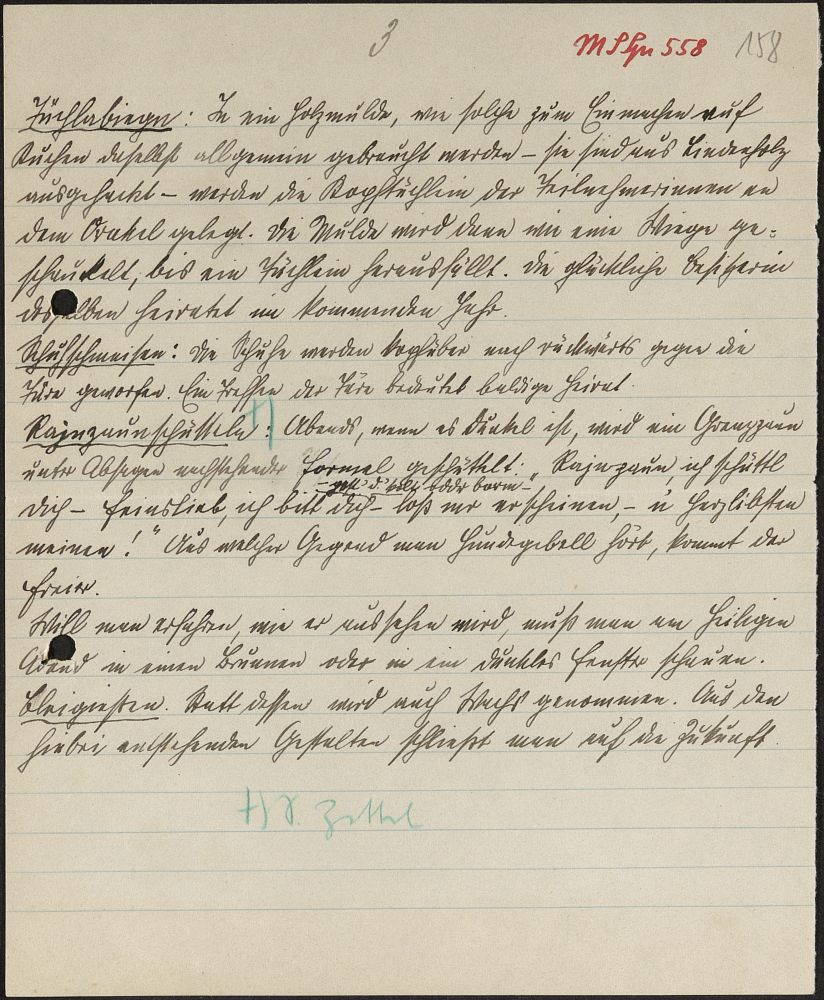 3
MSGu 558 158
Tüchlabiegn: In ein Holzmulde, wie solche zum Einmachen auf
Kuchen daselbst allgemein gebraucht werden – sie sind aus Lindenholz
ausgehackt – werden die Kopftüchlein der Teilnehmerinnen an
dem Orakel gelegt. Die Mulde wird dann wie eine Wiege ge-
schaukelt, bis ein Tüchlein herausfällt. Die glückliche Besitzerin
desselben heiratet im kommenden Jahr.
Schuhschmeisen: Die Schuhe werden kopfüber nach rückwärts gegen die
Türe geworfen. Ein Treffen der Türe bedeutet baldige Heirat.
Rajnzaunschütteln +): Abends, wenn es dunkel ist, wird ein Grenzzaun
unter Absagen nachstehender Formel geschüttelt: „Rajnzaun, ich schüttl
dich – Feinslieb, ich bitt dich – loß mr erscheinen, – n Herzlibsten
meinen!" Aus welcher Gegend man Hundegebell hört, kommt der
Freier.
Will man erfahren, wie er aussehen wird, muß man am Heiligen
Abend in einen Brunnen oder in ein dunkles Fenster schauen.
Bleigießen. Statt dessen wird auch Wachs genommen. Aus den
hierbei entstehenden Gestalten schließt man auf die Zukunft.
+) s. Zettel